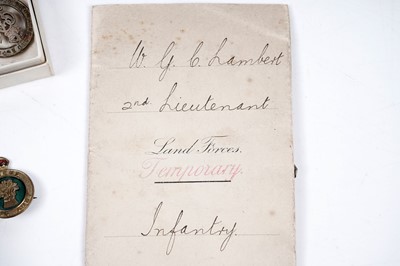 W. G. C. Lambert
2nd. Lieutenant
Land Forces,
Temporary.
Infantry.